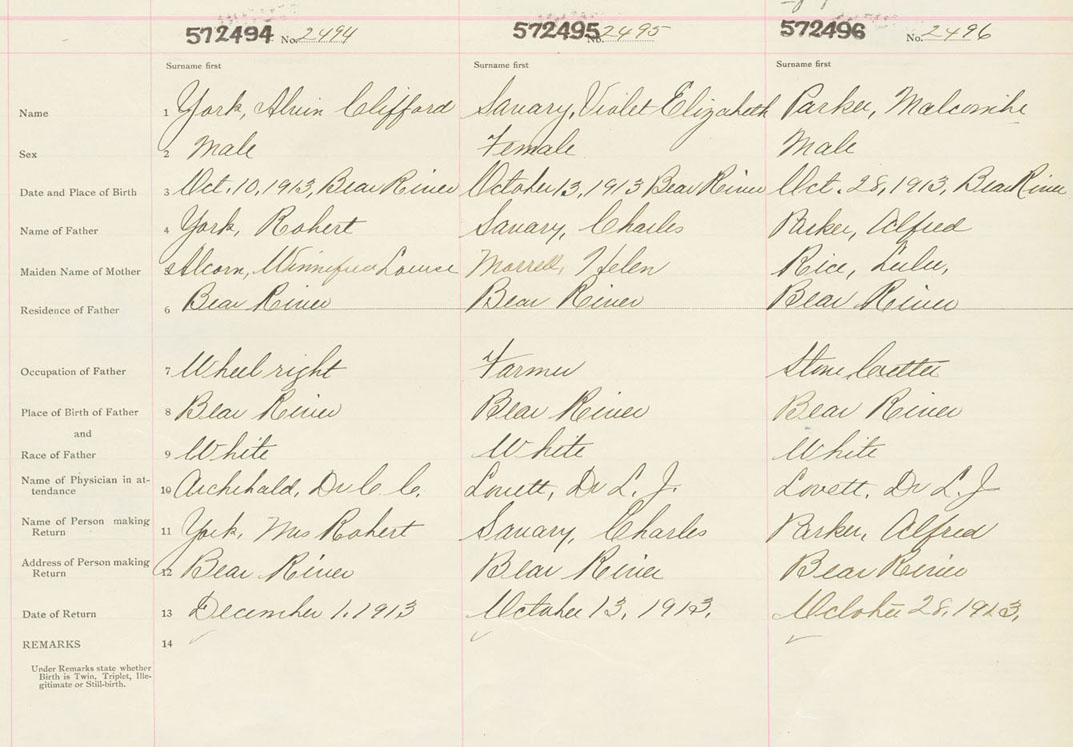 572494 No. 2494 572495 No. 2495 572496 No. 2496
Surname first Surname first Surname first
Name 1 York, Alvin Clifford Savary, Violet Elizabeth Parker, Malcombe
Sex 2 Male Female Male
Date and Place of Birth 3 Oct. 10, 1913, Bear River October 13, 1913 Bear River Oct. 28, 1913, Bear River
Name of Father 4 York, Robert Savary, Charles Parker, Alfred
Maiden Name of Mother 5 Alcorn, Winnifred Louise Morrell, Helen Rice, Lulu,
Residence of Father 6 Bear River Bear River Bear River
Occupation of Father 7 Wheel right Farmer Stone Cutter
Place of Birth of Father 8 Bear River Bear River Bear River
and
Race of Father 9 White White White
Name of Physician in at-
tendance 10 Archibald, Dr C. C. Lovett, Dr L. J. Lovett, Dr L. J
Name of Person making
Return 11 York, Mrs Robert Savary, Charles Parker, Alfred
Address of Person making
Return 12 Bear River Bear River Bear River
Date of Return 13 December 1, 1913 October 13, 1913. October 28, 1913.
REMARKS 14
Under Remarks state whether
Birth is Twin, Triplet, Ille-
gitimate or Still-birth.